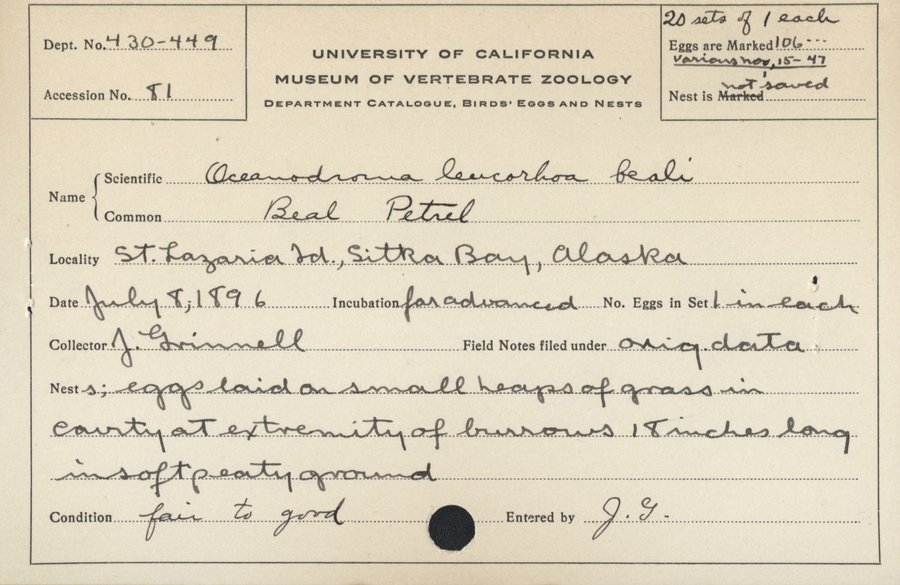 Dept. No. 430-449
Accession No. 81
UNIVERSITY OF CALIFORNIA
MUSEUM OF VERTEBRATE ZOOLOGY
DEPARTMENT CATALOGUE, BIRDS' EGGS AND NESTS
20 sets of 1 each
Eggs are Marked 106---
Various nos, 15-47
not saved
Nest is Marked
Name
Scientific Oceanodroma leucorhoa beali
Common Beal Petrel
Locality St. Lazaria Id., Sitka Bay, Alaska
Date July 8, 1896 Incubation far advanced No. Eggs in Set 1 in each
Collector J. Grinnell Field Notes filed under orig. data
Nest s; eggs laid on small heaps of grass in
cavity at extremity of burrows 18 inches long
in soft peaty ground
Condition fair to good Entered by J. G.